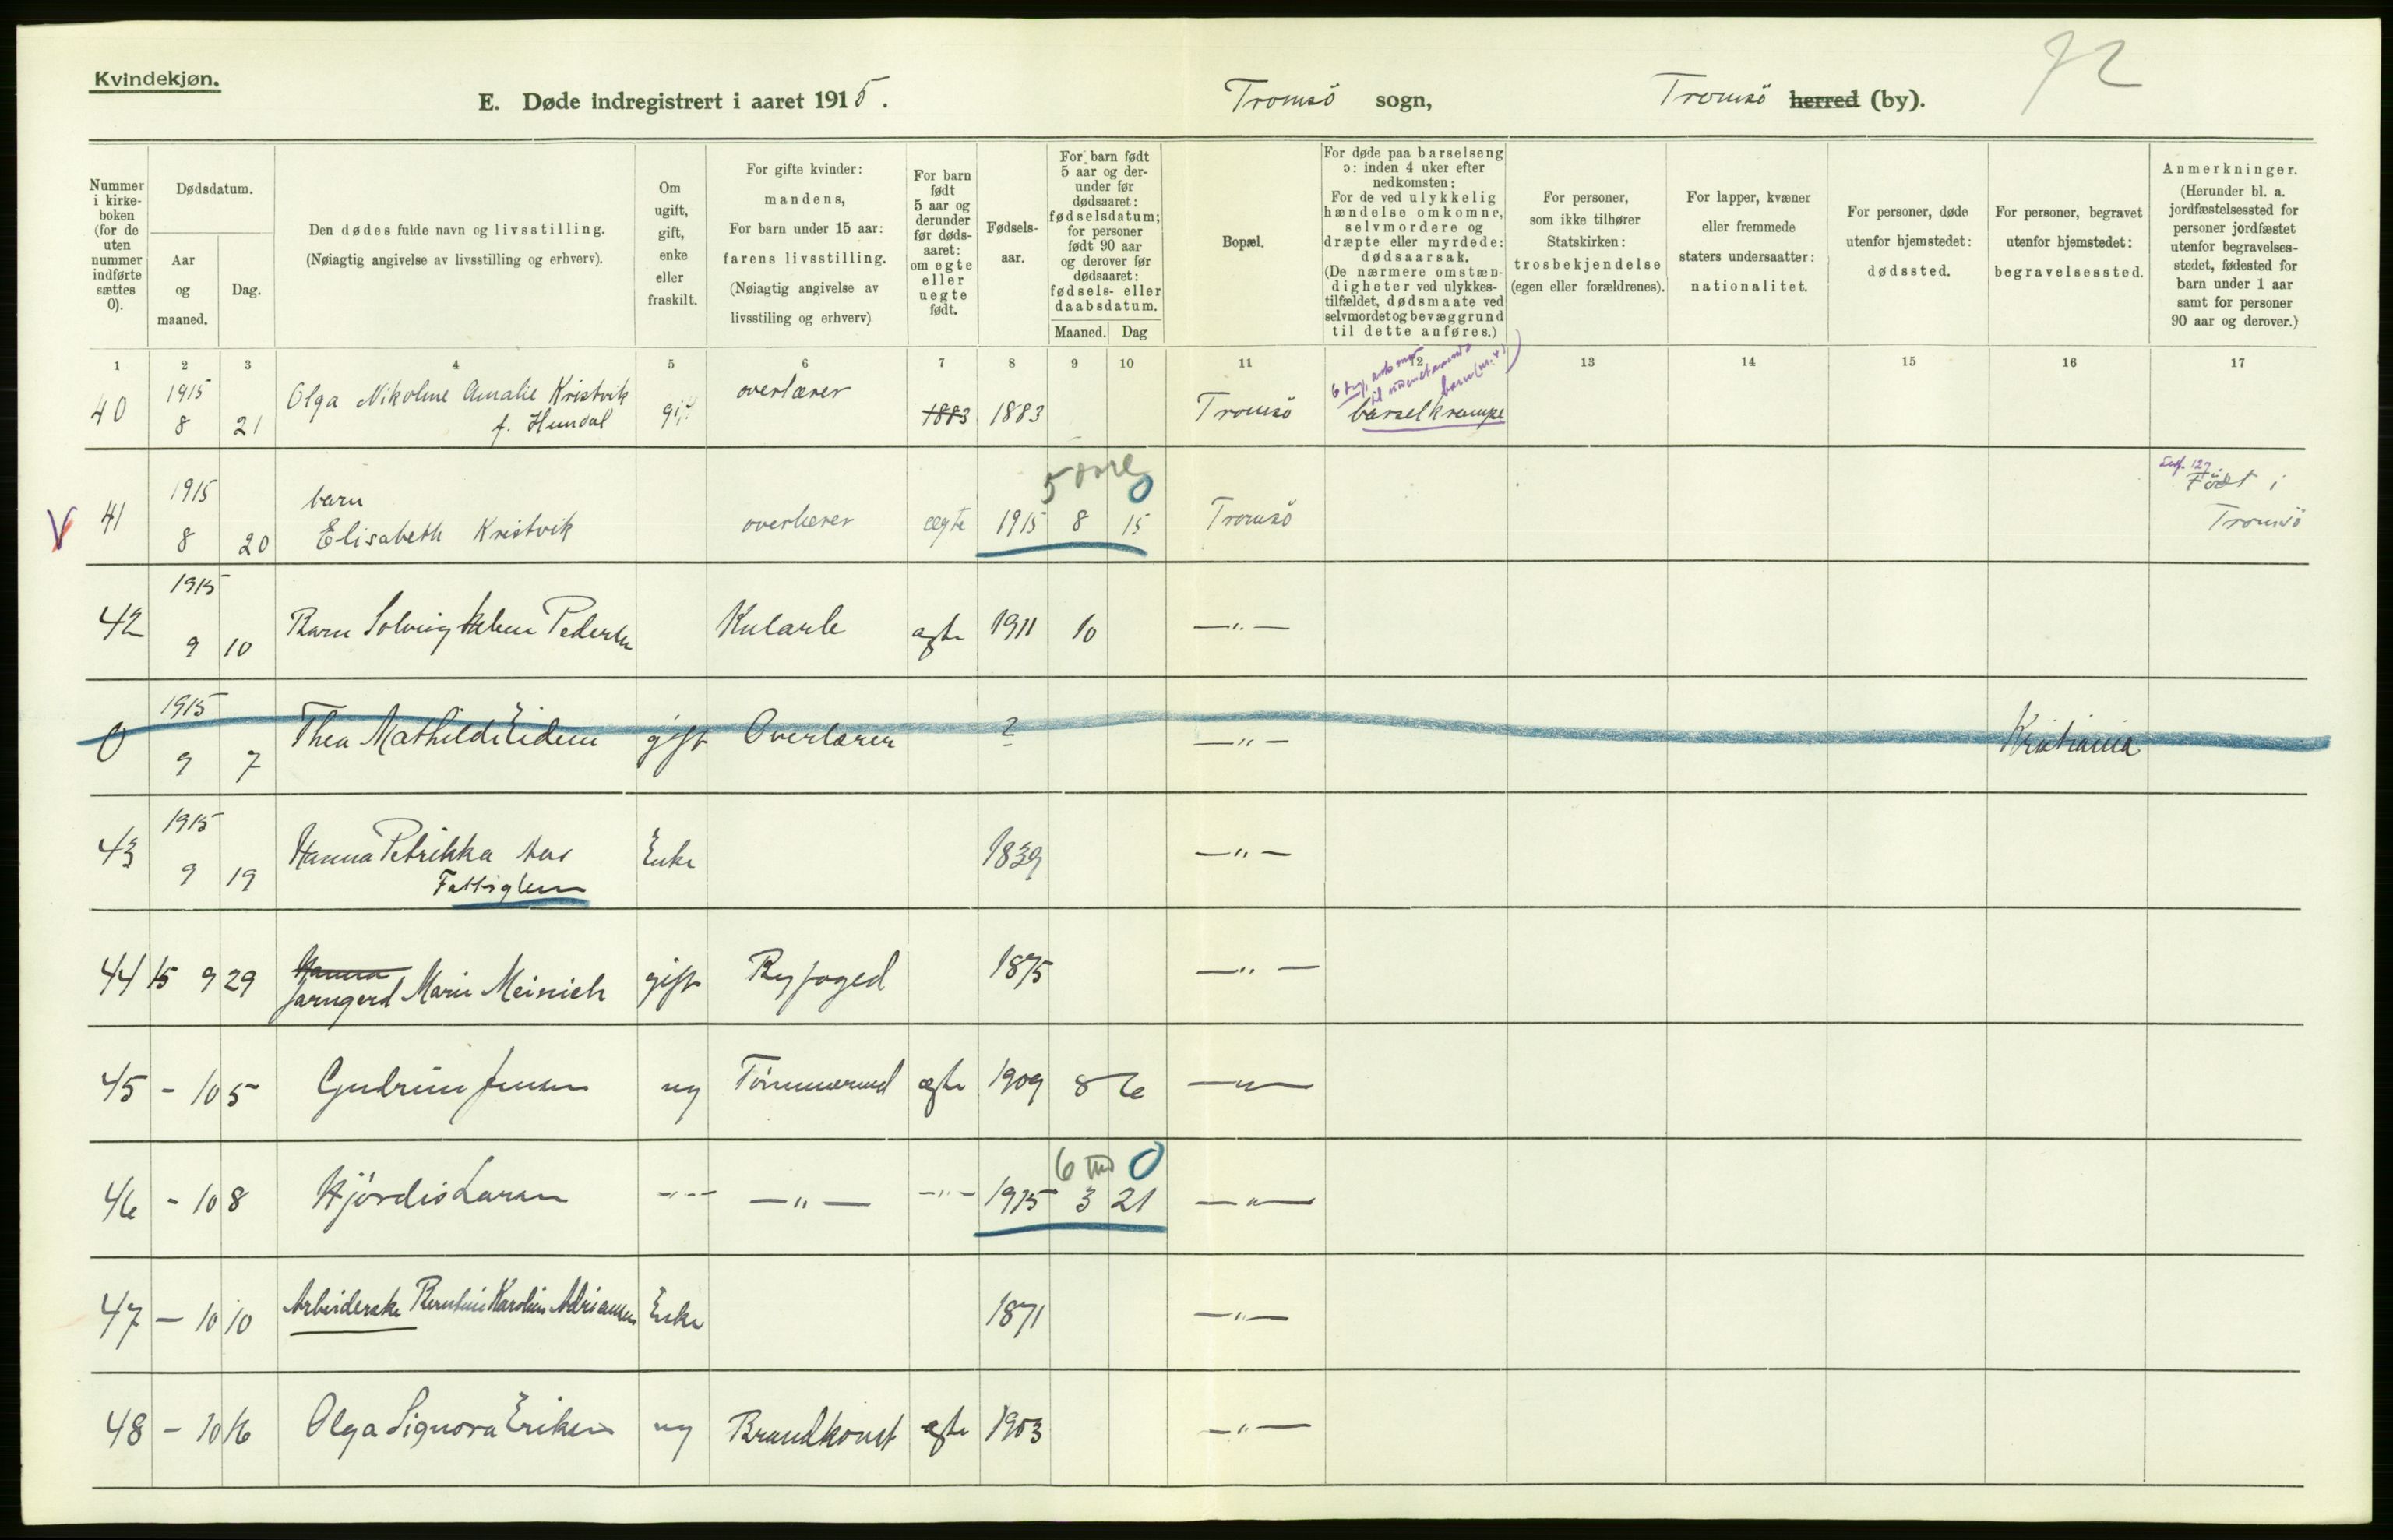 Kvindekjøn.
72
E. Døde indregistrert i aaret 1915.
Tromsö sogn,
Tromsö herred (by).
Nummer i kirke- boken (for de uten nummer indførte sættes 0).
Dødsdatum.
Aar og maaned.
Dag.
Den dødes fulde navn og livsstilling.
(Nøiagtig angivelse av livsstilling og erhverv).
Om ugift, gift, enke eller fraskilt.
For gifte kvinder: mandens,
For barn under 15 aar: farens livsstilling.
(Nøiagtig angivelse av livsstiling og erhverv)
For barn født 5 aar og derunder før døds- aaret: om egte eller uegte født.
Fødsels- aar.
For barn født 5 aar og der- under før dødsaaret: fødselsdatum; for personer født 90 aar og derover før dødsaaret: fødsels- eller daabsdatum.
Maaned. Dag
Bopæl.
For døde paa barselseng ɔ: inden 4 uker efter nedkomsten:
For de ved ulykkelig hændelse omkomne, selvmordere og dræpte eller myrdede: dødsaarsak.
(De nærmere omstæn- digheter ved ulykkes- tilfældet, dødsmaate ved selvmordet og bevæggrund til dette anføres.)
For personer, som ikke tilhører Statskirken: trosbekjendelse (egen eller forældrenes).
For lapper, kvæner eller fremmede staters undersaatter: nationalitet.
For personer, døde utenfor hjemstedet: dødssted.
For personer, begravet utenfor hjemstedet: begravelsessted.
Anmerkninger.
(Herunder bl. a. jordfæstelsessted for personer jordfæstet utenfor begravelses- stedet, fødested for barn under 1 aar samt for personer 90 aar og derover.)
1 2 3 4 5 6 7 8 9 10 11 12 13 14 15 16 17
40 1915 8 21 Olga Nikoline Amalie Kristvik f. Hundal gift overlærer 1883 1883 Tromsö barselkrampe
5 dage 0
41 1915 8 20 barn Elisabeth Kristvik overlærer ægte 1915 8 15 Tromsö Født i Tromsö
42 1915 9 10 Barn Solveig Helene Pedersen ægte 1911 10 —"—
0 1915 9 7 Thea Mathilde Eidem gift Overlærer ? —"— Kristiania
43 1915 9 19 Hanna Petrikka Aas Fattiglem Enke 1839 —"—
44 15 9 29 Hanna Jarngerd Marie Meinich gift Byfoged 1875 —"—
45 - 10 5 Gudrun Jensen ug Tömmermd ægte 1909 8 6 —"—
6 md 0
46 - 10 8 Hjördis Larsen -"- —"— -"- 1915 3 21 —"—
47 — 10 10 Arbeiderske Berntine Karoline Adriansen Enke 1871 —"—
48 - 10 16 Olga Signora Eriksen ug Brandkonst ægte 1903 —"—